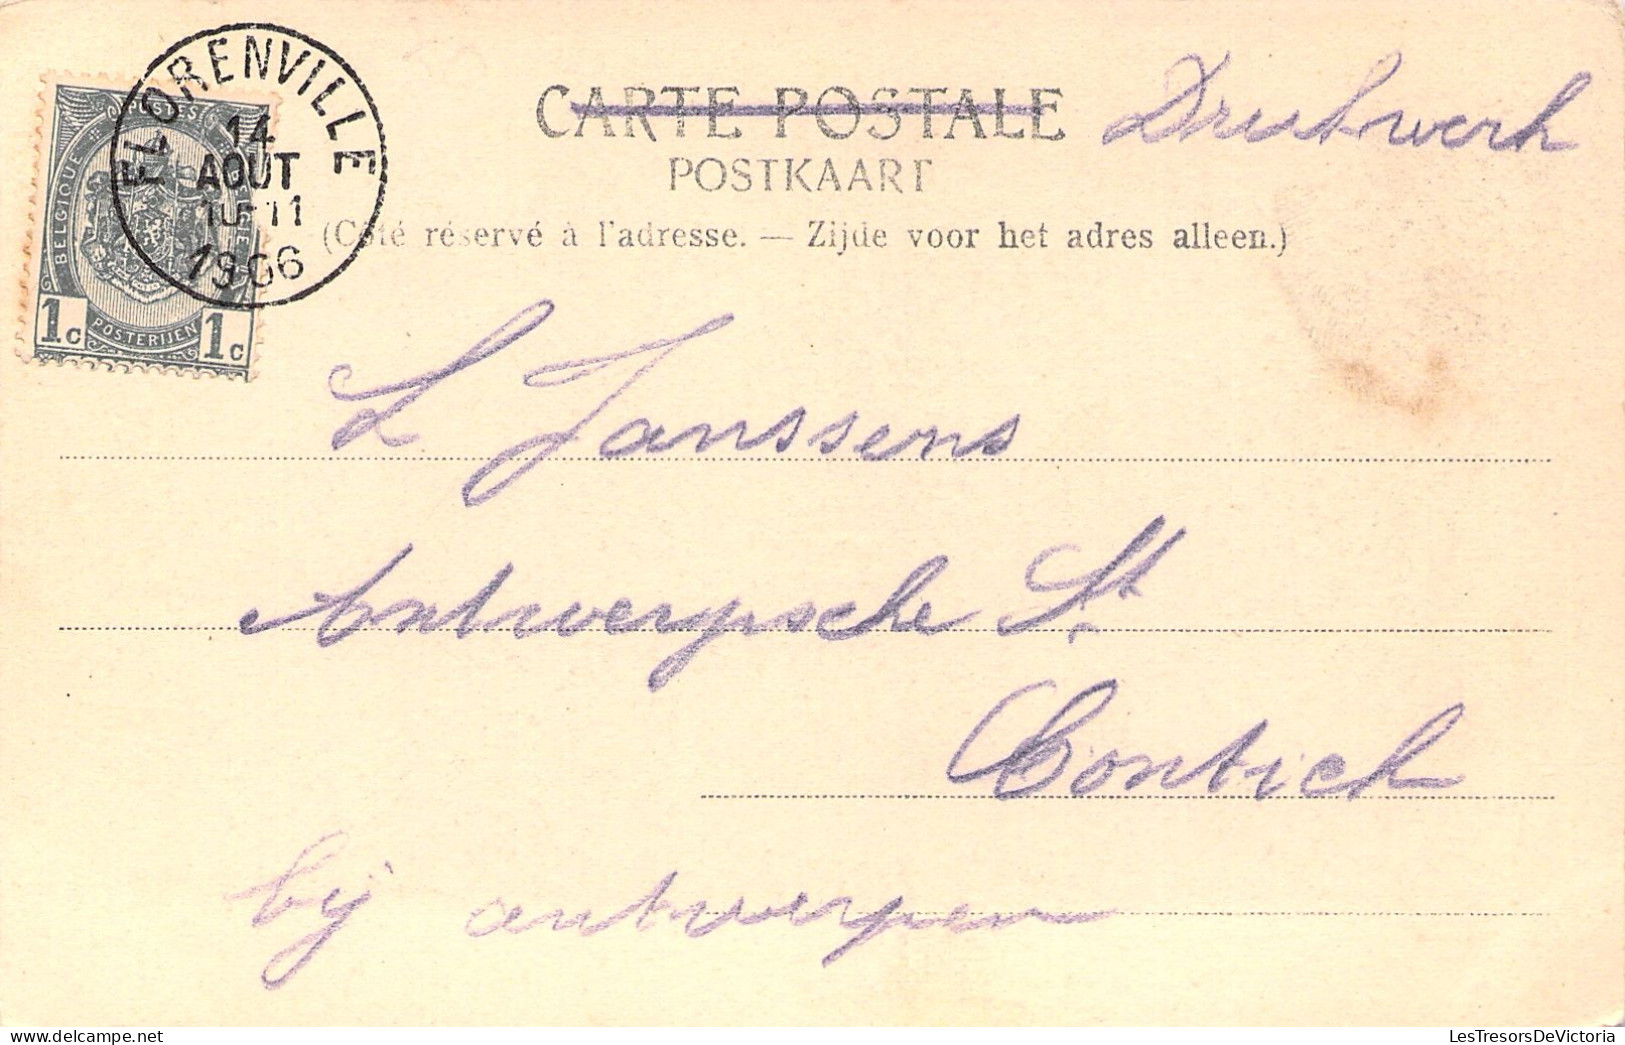 FLORENVILLE
14
AOUT
10-11
1906
POSTES
BELGIQUE
BELGIË
POSTERIJEN
1c 1c
CARTE POSTALE Drukwerk
POSTKAART
(Côté réservé à l'adresse. — Zijde voor het adres alleen.)
L Janssens
Antwerpsche St.
Contich
bij antwerpen
LesTresorsDeVictoria